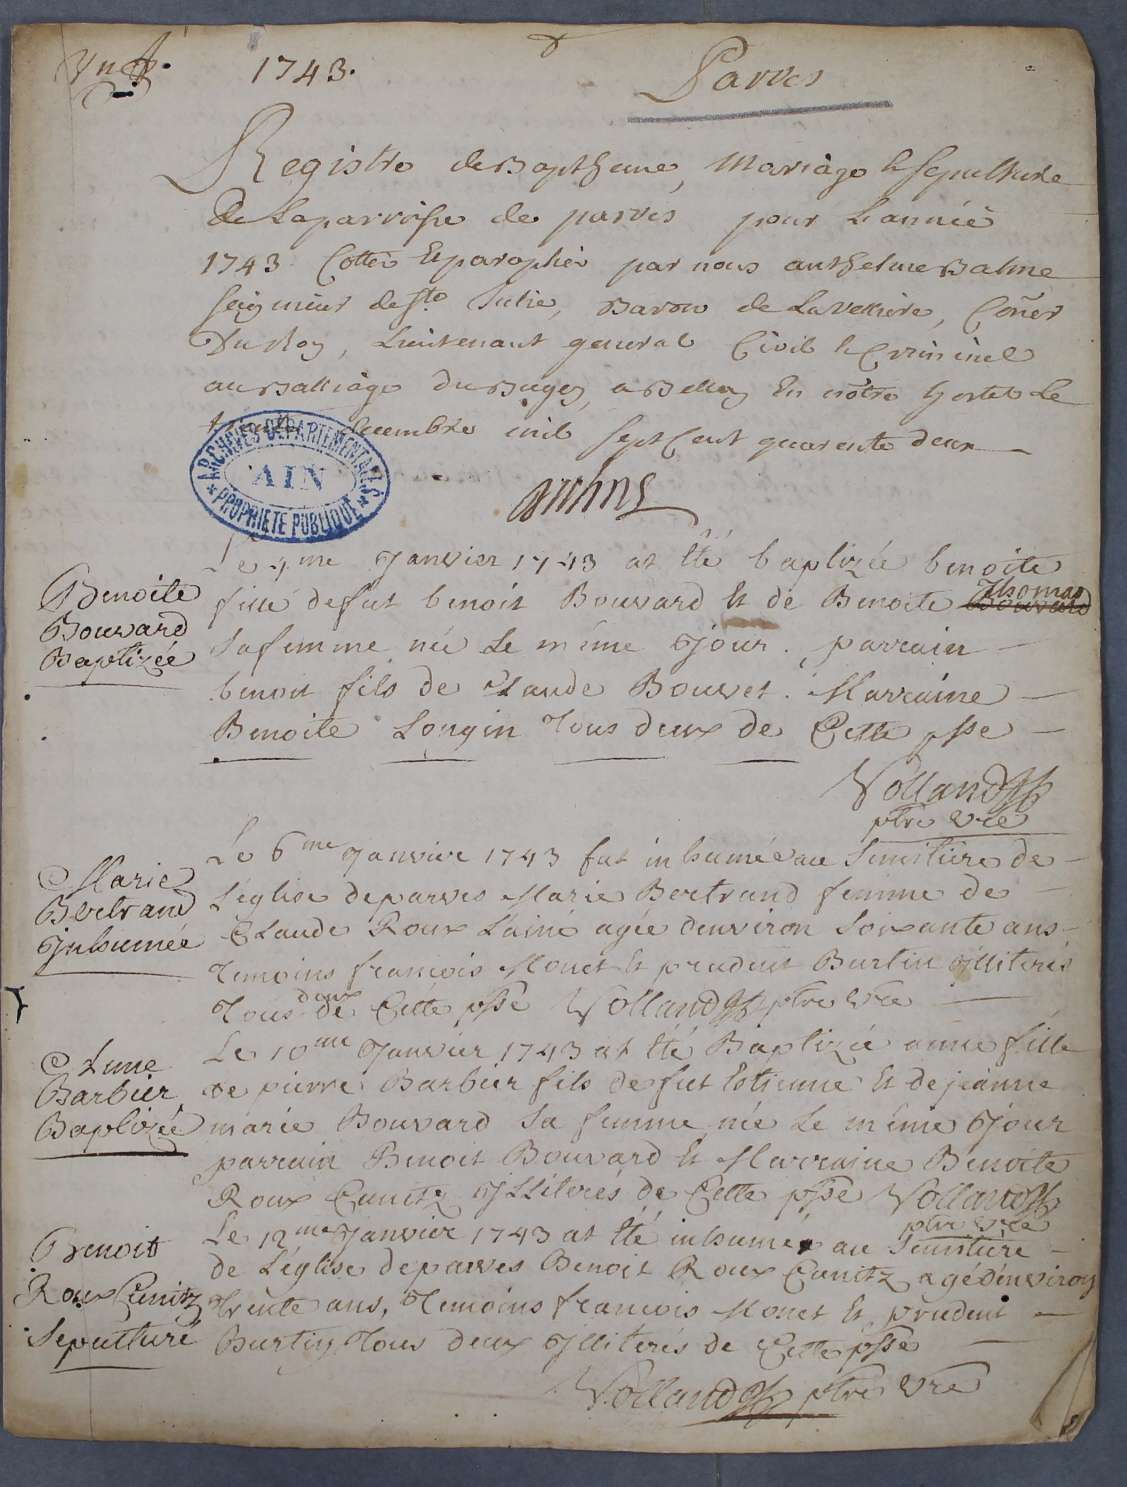 1743. Parves
Registre de Baptheme, Mariage & sepulture
De Laparroisse de parves pour Lannéé
1743 Cotté & paraphéé par nous anthelme Balme
seigneur de Ste Julie, Baron de La Velliere, Coñer
Du Roy, Lieutenant general Civil & Criminel
au Balliage Du Bugey, a Belley En nôtre hostel Le
decembre mil sept Cent quarente deux
ARCHIVES DÉPARTEMENTALES
AIN
PROPRIÉTÉ PUBLIQUE
Benoite
Bouvard
Baptizée
Le 4me Janvier 1743 at été baptizée benoite
fille defut benoit Bouvard Et de Benoite Thomas Bouvard
Safemme néé Le même Jour. parrain
benoit fils de Claude Bouvet. Marraine
Benoite Longin Tous deux de Cette psse
Volland
ptre vre
Marie
Bertrand
Inhumée
Le 6me Janvier 1743 fut inhumée au Simitiere de
Léglise deparves Marie Bertrand femme de
Claude Roux Lainé agée denviron Soixante ans
Temoins francois Monet Et prudent Burtin Illiterés
Tous deux de Cette psse Volland ptre vre
Anne
Barbier
Baptizéé
Le 10me Janvier 1743 at été Baptizéé anne fille
de pierre Barbier fils defut Estienne Et dejeanne
marie Bouvard Sa femme néé Le même Jour
parrain Benoit Bouvard Et Marraine Benoite
Roux Cunitz Illiterés de Cette psse Volland
ptre vre
Benoit
Roux Cunitz
Sepulturé
Le 12me Janvier 1743 at été inhumé au Simitiere
de Léglise deparves Benoit Roux Cunitz agé Denviron
Trente ans, Temoins francois Monet Et prudent
Burtin Tous deux Illiterés de Cette psse
Volland ptre vre